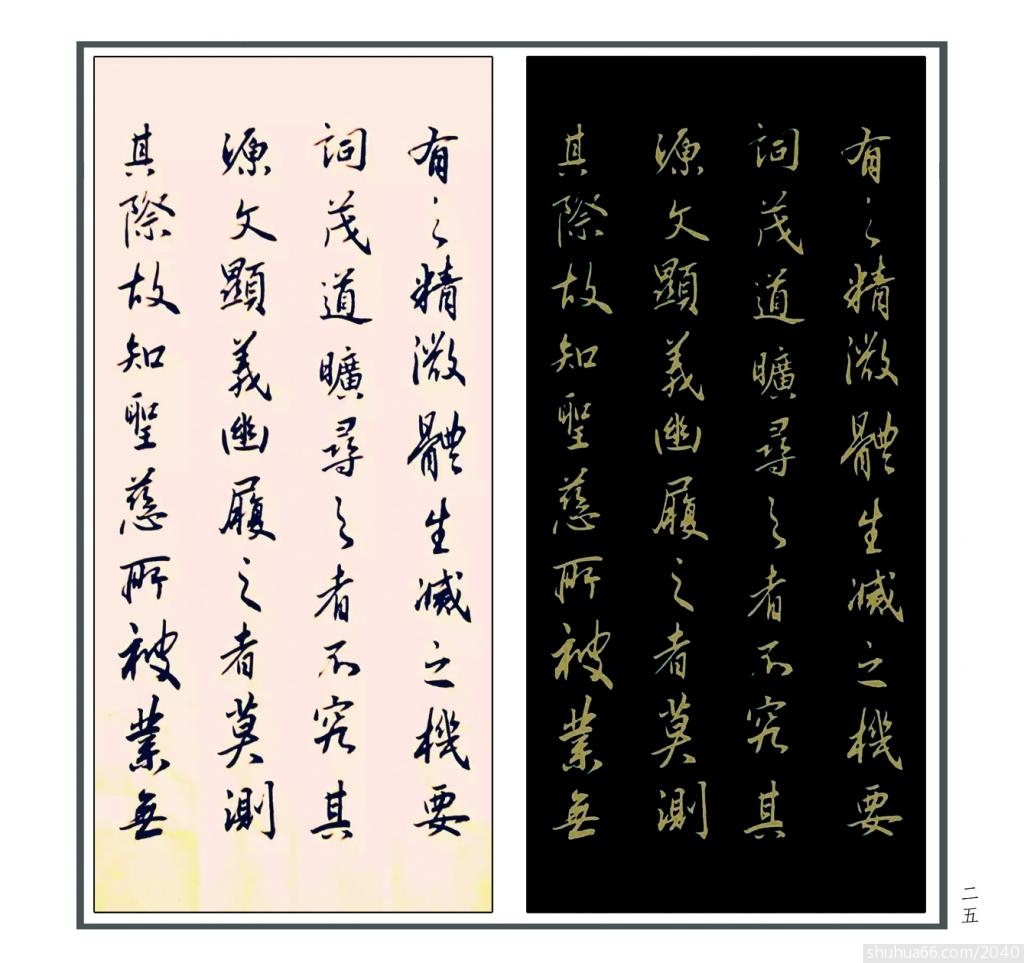 有之精微體生滅之機要
詞茂道曠尋之者不究其
源文顯義幽履之者莫測
其際故知聖慈所被業無
有之精微體生滅之機要
詞茂道曠尋之者不究其
源文顯義幽履之者莫測
其際故知聖慈所被業無
二五
shuhua66.com/2040